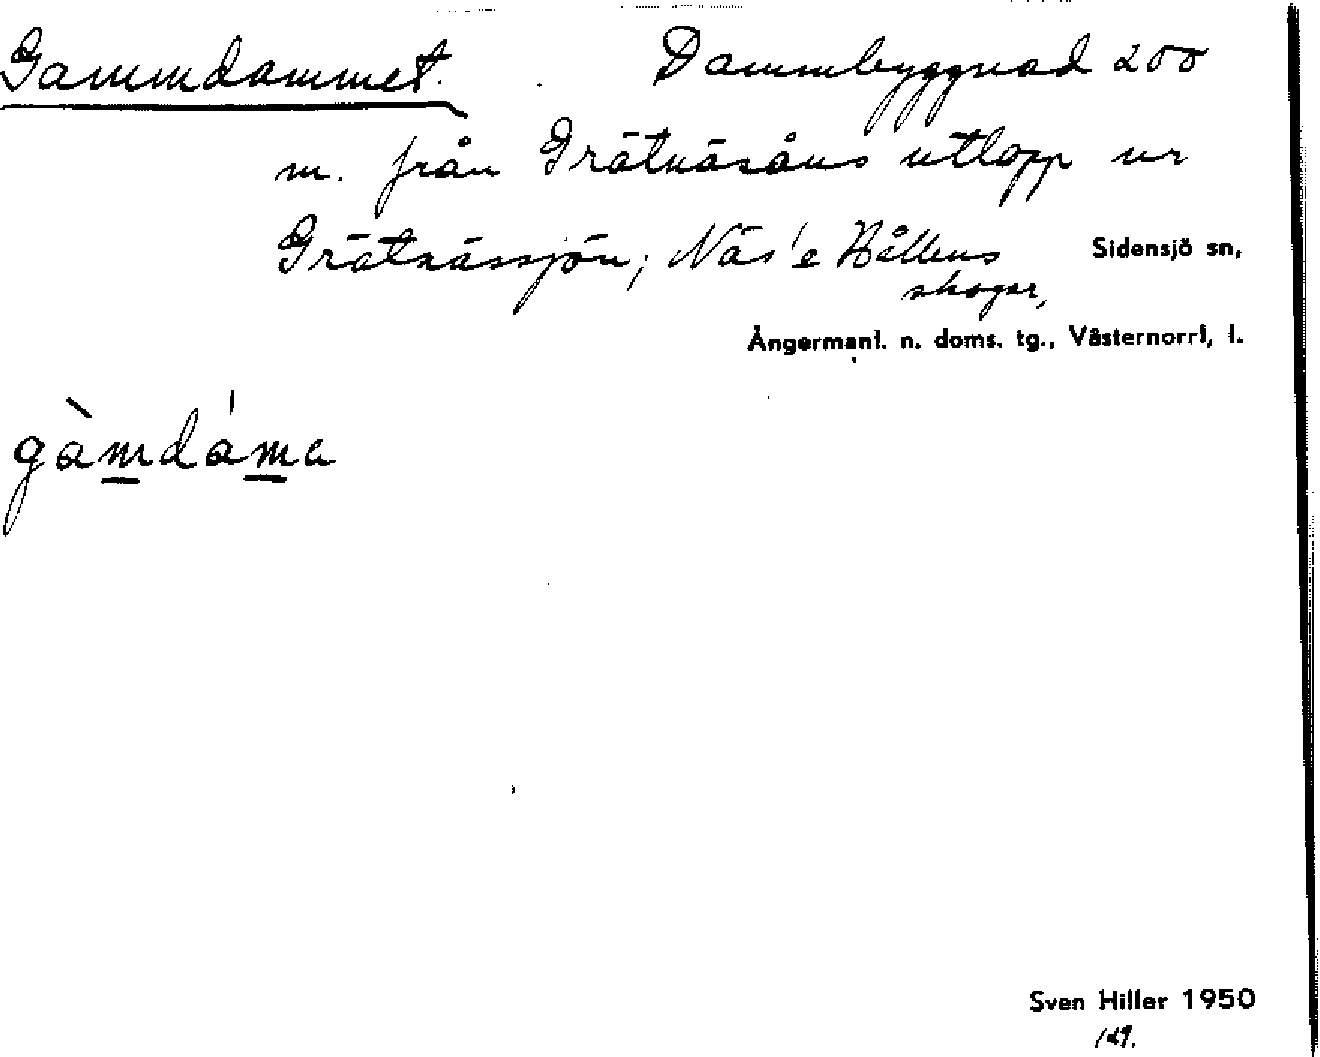 Gammdammet. Dammbyggnad 200
m. från Grätnäsåns utlopp ur
Grätnässjön; Näs' e Hållens Sidensjö sn,
skogar,
Ångermanl. n. doms. tg., Västernorrl, l.
gàmdáma
Sven Hiller 1950